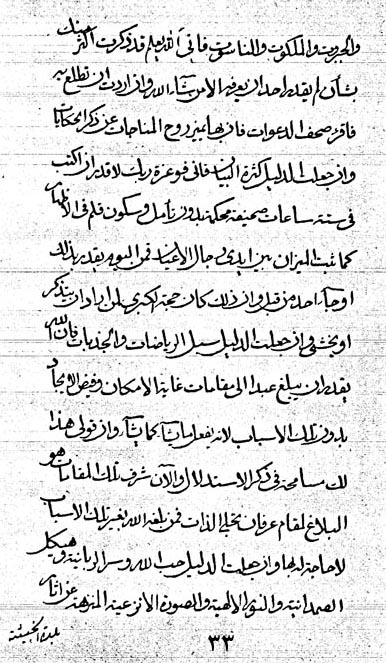 والجبروت والملكوت والناسوت فانى الله يعلم قد ذكرت اكثر
بشأن لم يقدر احد ان يعرفه الا من شاء الله وان اردت ان تطلع به
فاقرء صحف الدعوات فان بها يميز روح المناجات عن ذكر الحكايات
وان جعلت الدليل كثرة البيان فانى فوعزة ربك لاقدر ان اكتب
فى ستة ساعات صحيفة محكمة بدون تأمل وسكون قلم فى الاظهار
كما ثبت الميزان بين ايدى رجال الاعيان فمن اليوم يقدر بذلك
او جاء احد من قبل وان ذلك كان حجة الكبرى لمن اراد ان يتذكر
او يخشى وان جعلت الدليل سبل الرياضات والجذبات فان الله
يقدر ان يبلغ عبدا الى مقامات غاية الامكان وفيض الايجاد
بدون تلك الاسباب لانه يفعل ما يشاء كما يشاء وان قولى هذا
لك مسامحة فى ذكر الاستدلال والآن شرف تلك المقامات هو
البلاغ لمقام عرفان تجلى الذات فمن بلغه الله بغير تلك الاسباب
لا حاجة له بها وان جعلت الدليل حب الله وسر الربانية وهيكل
الصمدانية والالهية والصورة الانزعية المنزهة
٣٣